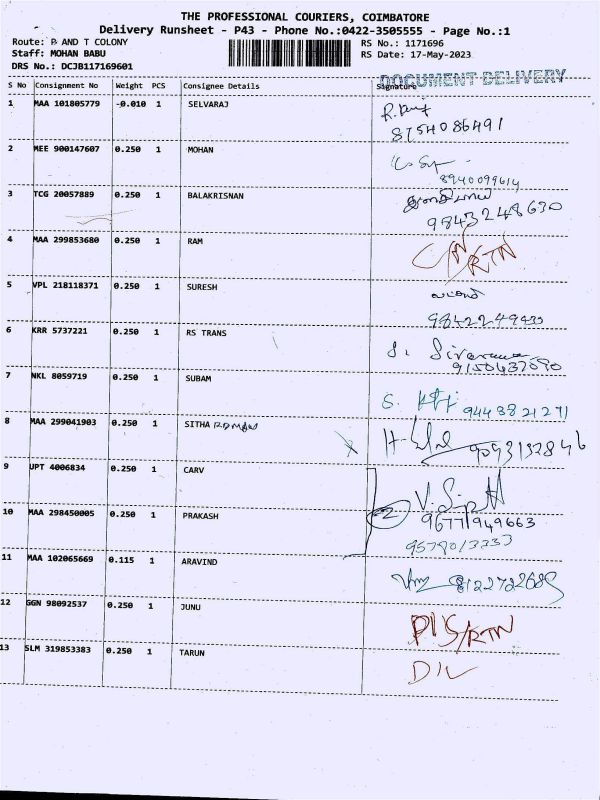 THE PROFESSIONAL COURIERS, COIMBATORE
Delivery Runsheet - P43 - Phone No.:0422-3505555 - Page No.:1
Route: P AND T COLONY RS No.: 1171696
Staff: MOHAN BABU RS Date: 17-May-2023
DRS No.: DCJB117169601
DOCUMENT DELIVERY
S No Consignment No Weight PCS Consignee Details Signature
1 MAA 101805779 -0.010 1 SELVARAJ
8754086491
2 MEE 900147607 0.250 1 MOHAN
8940099614
3 TCG 20057889 0.250 1 BALAKRISNAN
9843248630
4 MAA 299853680 0.250 1 RAM CN/RTN
5 VPL 218118371 0.250 1 SURESH
9842249433
6 KRR 5737221 0.250 1 RS TRANS
9150437090
7 NKL 8059719 0.250 1 SUBAM
9443821271
8 MAA 299041903 0.250 1 SITHA RAMAN
9093132846
9 UPT 4006834 0.250 1 CARV
10 MAA 298450005 0.250 1 PRAKASH
9677949663
9578013333
11 MAA 102065669 0.115 1 ARAVIND
8122722689
12 GGN 98092537 0.250 1 JUNU DIS/RTN
13 SLM 319853383 0.250 1 TARUN D/L